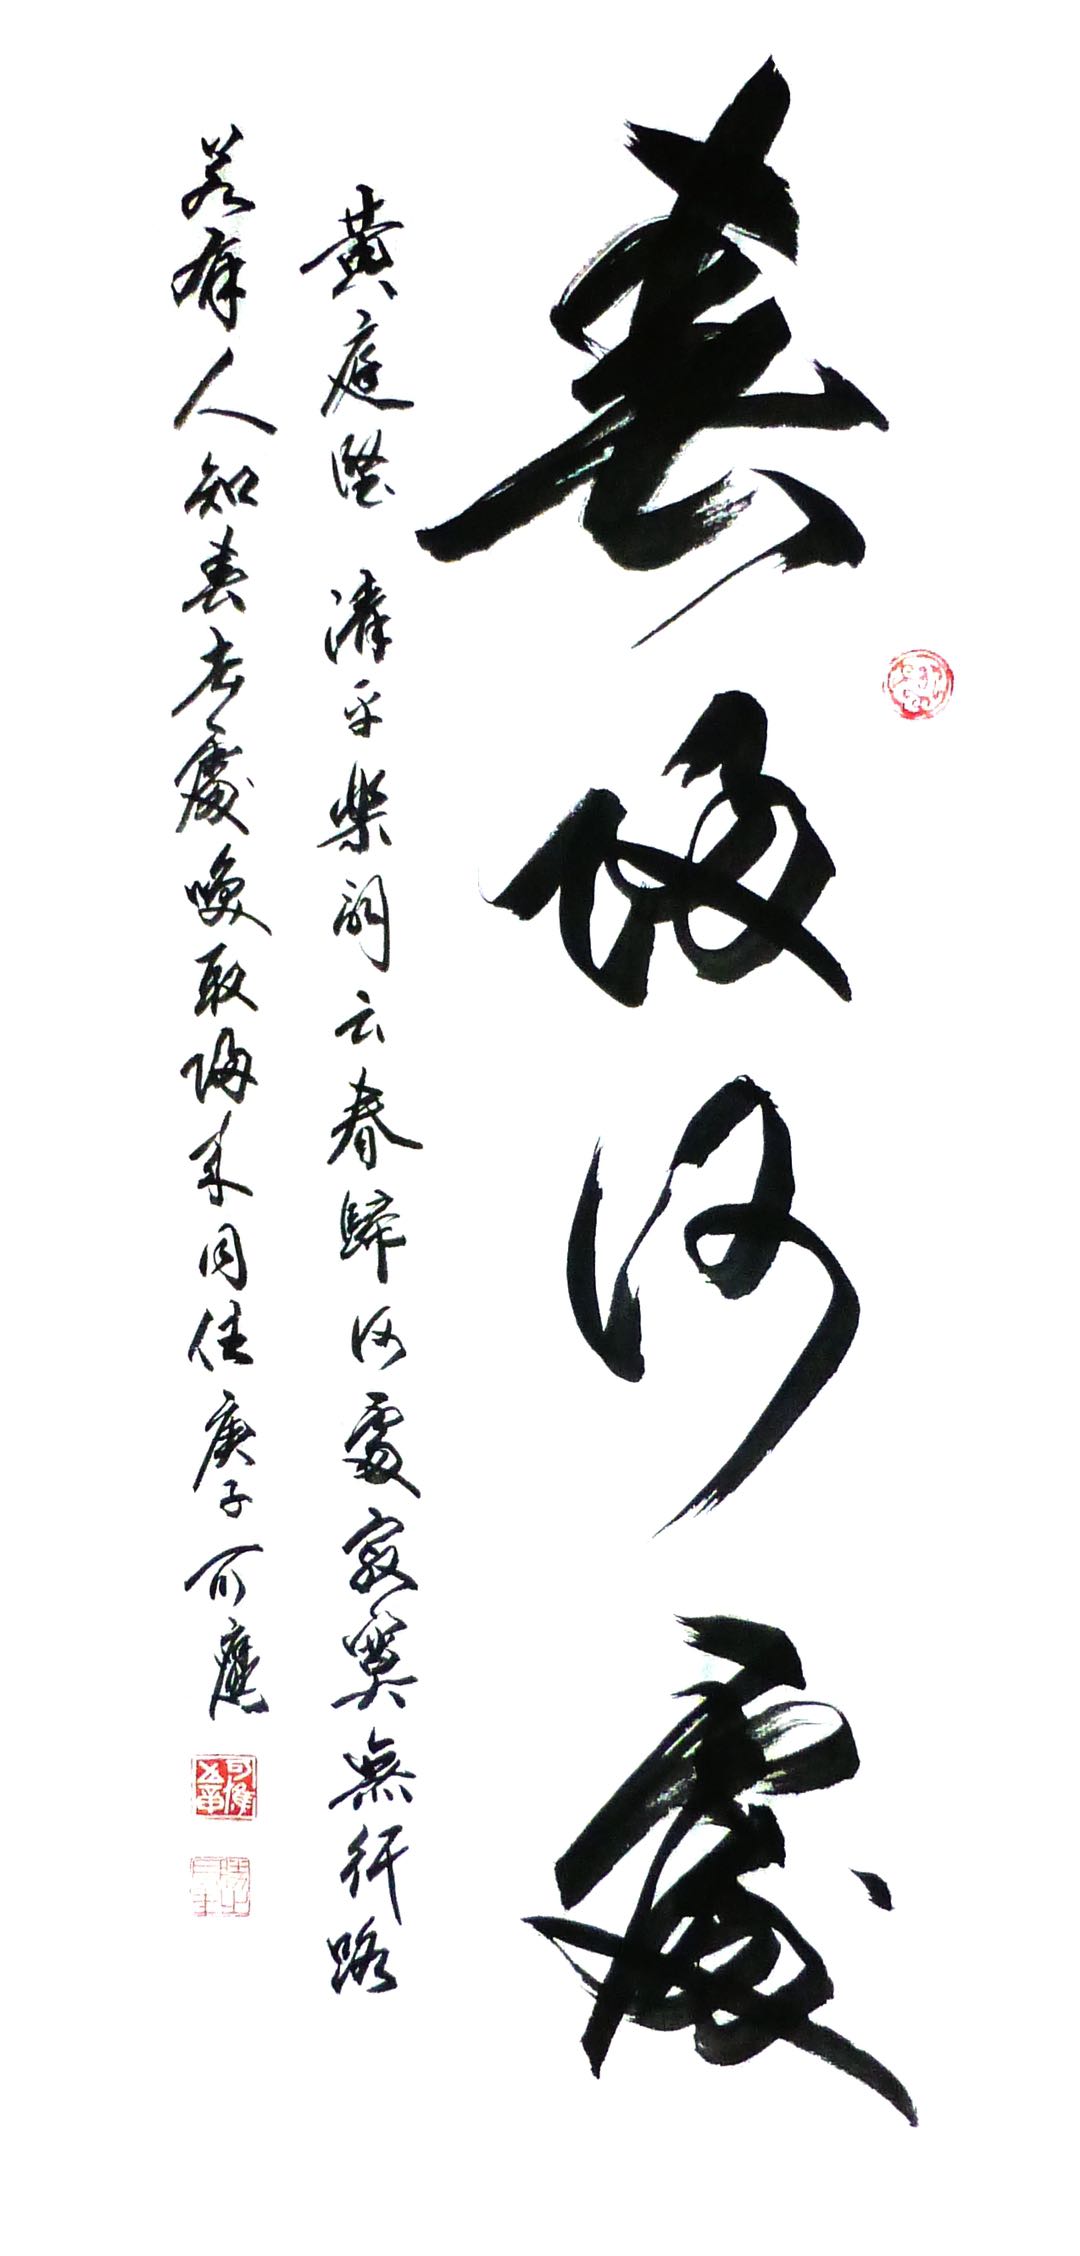 春歸何處
黃庭堅 清平樂詞云春歸何處寂寞無行路
若有人知春去處喚取歸來同住庚子可應